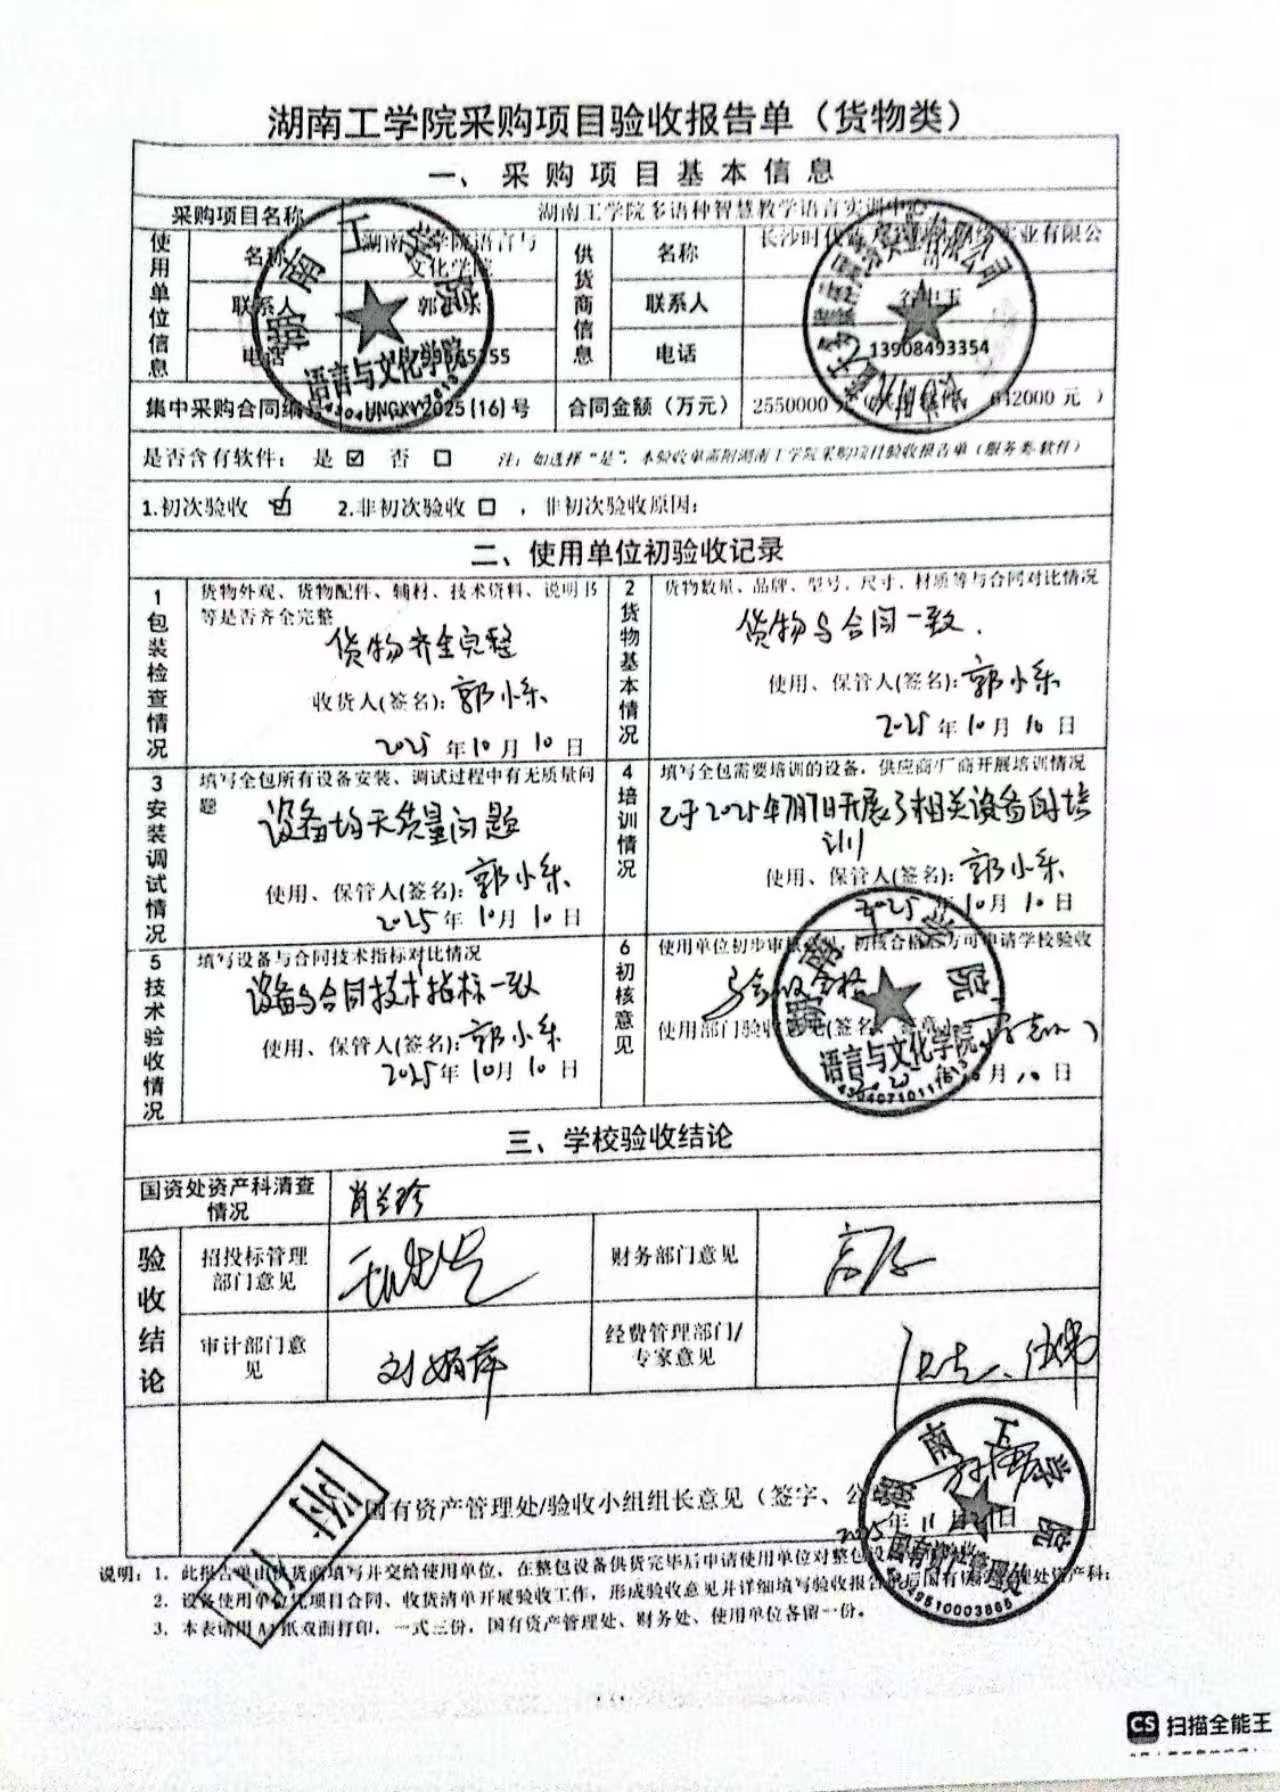 湖南工学院采购项目验收报告单（货物类）
一、采购项目基本信息
采购项目名称 湖南工学院多语种智慧教学语言实训中心
使用单位信息 名称 湖南工学院语言与文化学院 供货商信息 名称 长沙时代 实业有限公
联系人 郭 乐 联系人
电话 55 电话 13908493354
集中采购合同编号 HNGXY2025[16]号 合同金额（万元） 2550000 642000 元 ）
是否含有软件： 是 ☑ 否 □ 注：如选择“是”，本验收单需附湖南工学院采购项目验收报告单（服务类软件）
1.初次验收 ☑ 2.非初次验收 □ ，非初次验收原因：
二、使用单位初验收记录
1 包装检查情况
货物外观、货物配件、辅材、技术资料、说明书等是否齐全完整
货物齐全完整
收货人(签名)：郭小乐
2025 年 10 月 10 日
2 货物基本情况
货物数量、品牌、型号、尺寸、材质等与合同对比情况
货物与合同一致.
使用、保管人(签名)：郭小乐
2025 年 10 月 10 日
3 安装调试情况
填写全包所有设备安装、调试过程中有无质量问题
设备均无质量问题
使用、保管人(签名)：郭小乐
2025 年 10 月 10 日
4 培训情况
填写全包需要培训的设备，供应商/厂商开展培训情况
已于2025年7月1日开展了相关设备的培训
使用、保管人(签名)：郭小乐
2025 年 10 月 10 日
5 技术验收情况
填写设备与合同技术指标对比情况
设备与合同技术指标一致
使用、保管人(签名)：郭小乐
2025 年 10 月 10 日
6 初核意见
使用单位初步审核意见，初核合格后方可申请学校验收
验收合格
使用部门验收意见(签名、签章)
月 10 日
湖南工学院
语言与文化学院
三、学校验收结论
国资处资产科清查情况 肖兰珍
验收结论
招投标管理部门意见
财务部门意见
审计部门意见 刘娟萍
经费管理部门/专家意见
国有资产管理处/验收小组组长意见（签字、公
2025 年 11 月 21 日
湖南工学院
国有资产管理处
说明：1．此报告单由供货商填写并交给使用单位，在整包设备供货完毕后申请使用单位对整包设 处资产科；
2．设备使用单位凭项目合同、收货清单开展验收工作，形成验收意见并详细填写验收报告
3．本表请用A4纸双面打印，一式三份，国有资产管理处、财务处、使用单位各留一份。
CS 扫描全能王